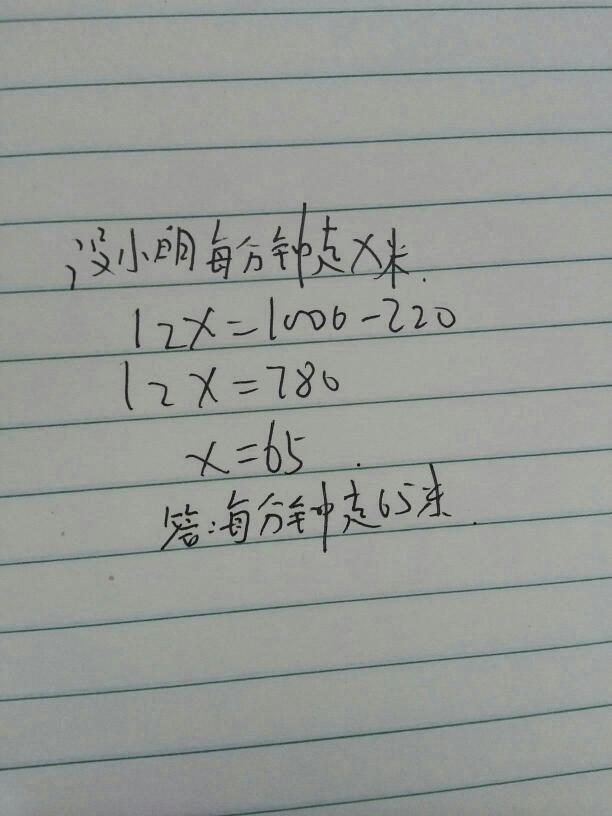 设小明每分钟走X米.
12X=1000-220
12X=780
x=65.
答:每分钟走65米.